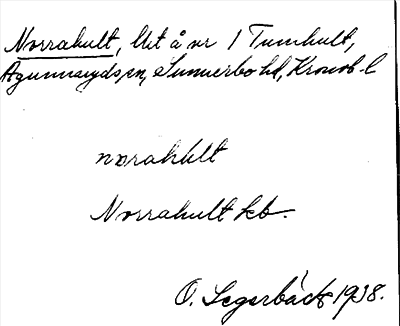 Norrahult, lht å nr 1 Turnhult,
Agunnaryds sn, Sunnerbo hd, Kronob. l
norahult
Norrahult kb.
O. Segerbäck 1938.